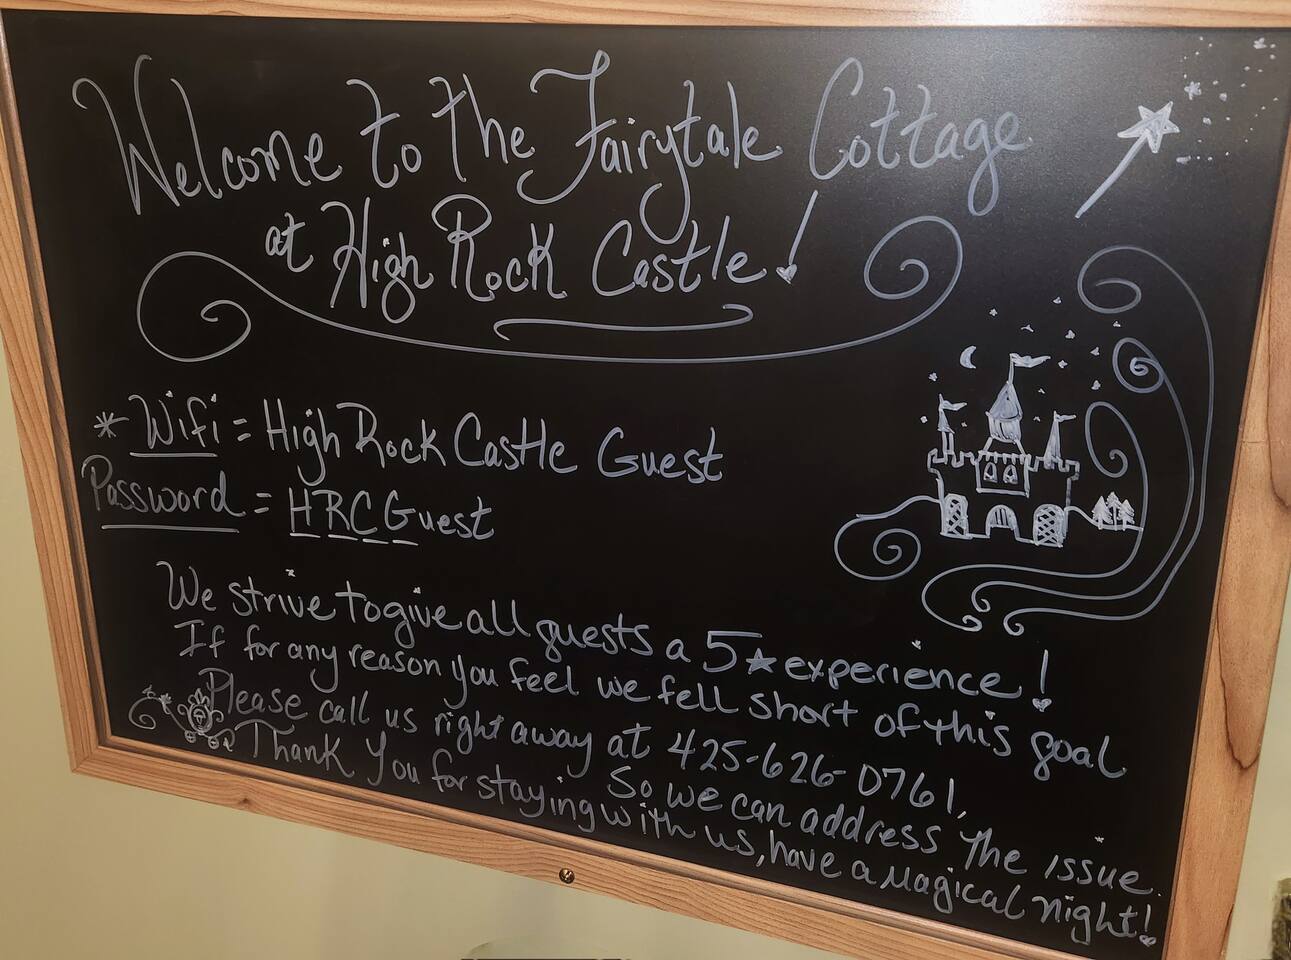 Welcome to The Fairytale Cottage
at High Rock Castle!
* Wifi = High Rock Castle Guest
Password = HRCGuest
We strive to give all guests a 5★ experience!
If for any reason you feel we fell short of this goal
Please call us right away at 425-626-0761,
So we can address the issue.
Thank You for staying with us, have a Magical night!